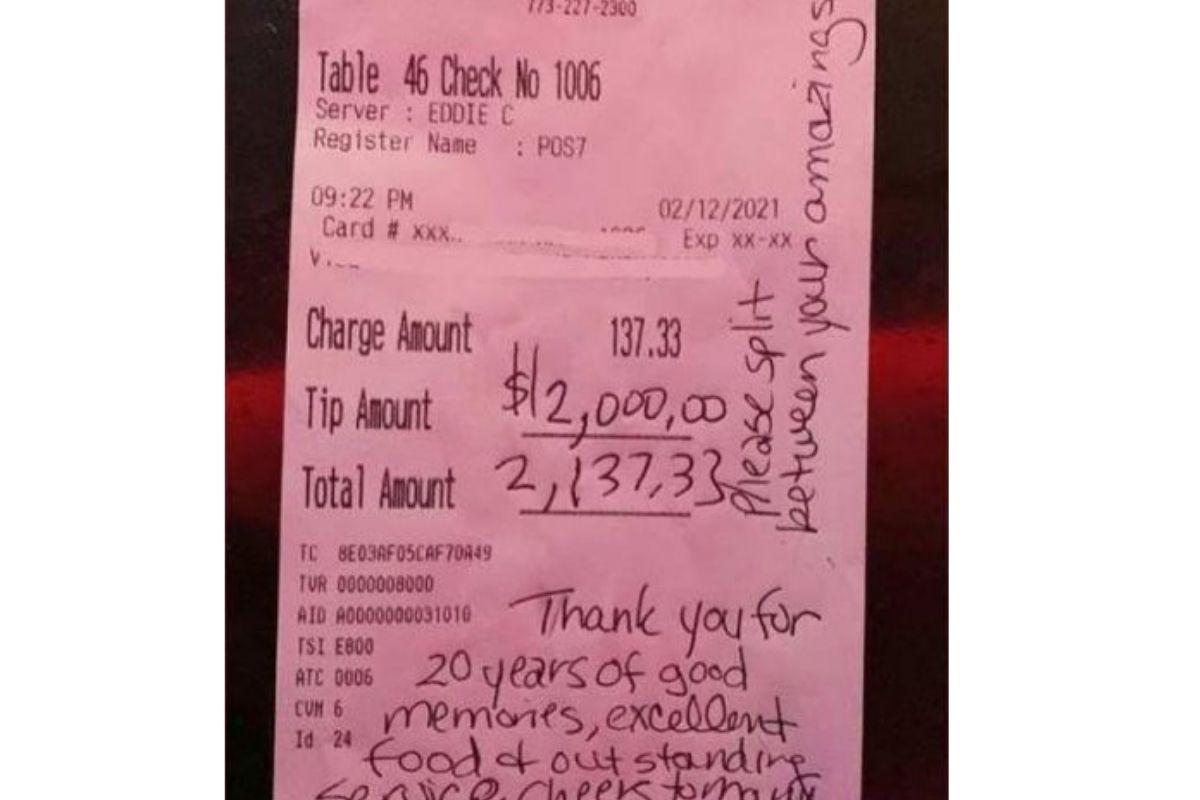 773-227-2300
Table 46 Check No 1006
Server : EDDIE C
Register Name : POS7
09:22 PM 02/12/2021
Card # xxx.. Exp xx-xx
Charge Amount 137.33
Tip Amount $2,000.00
Total Amount 2,137.33
Please split
between your amazing
TC 8E03AF05CAF70A49
TVR 0000008000
AID A0000000031010
TSI E800
ATC 0006
CVM 6
Id 24
Thank you for
20 years of good
memories, excellent
food & outstanding
service. Cheers to